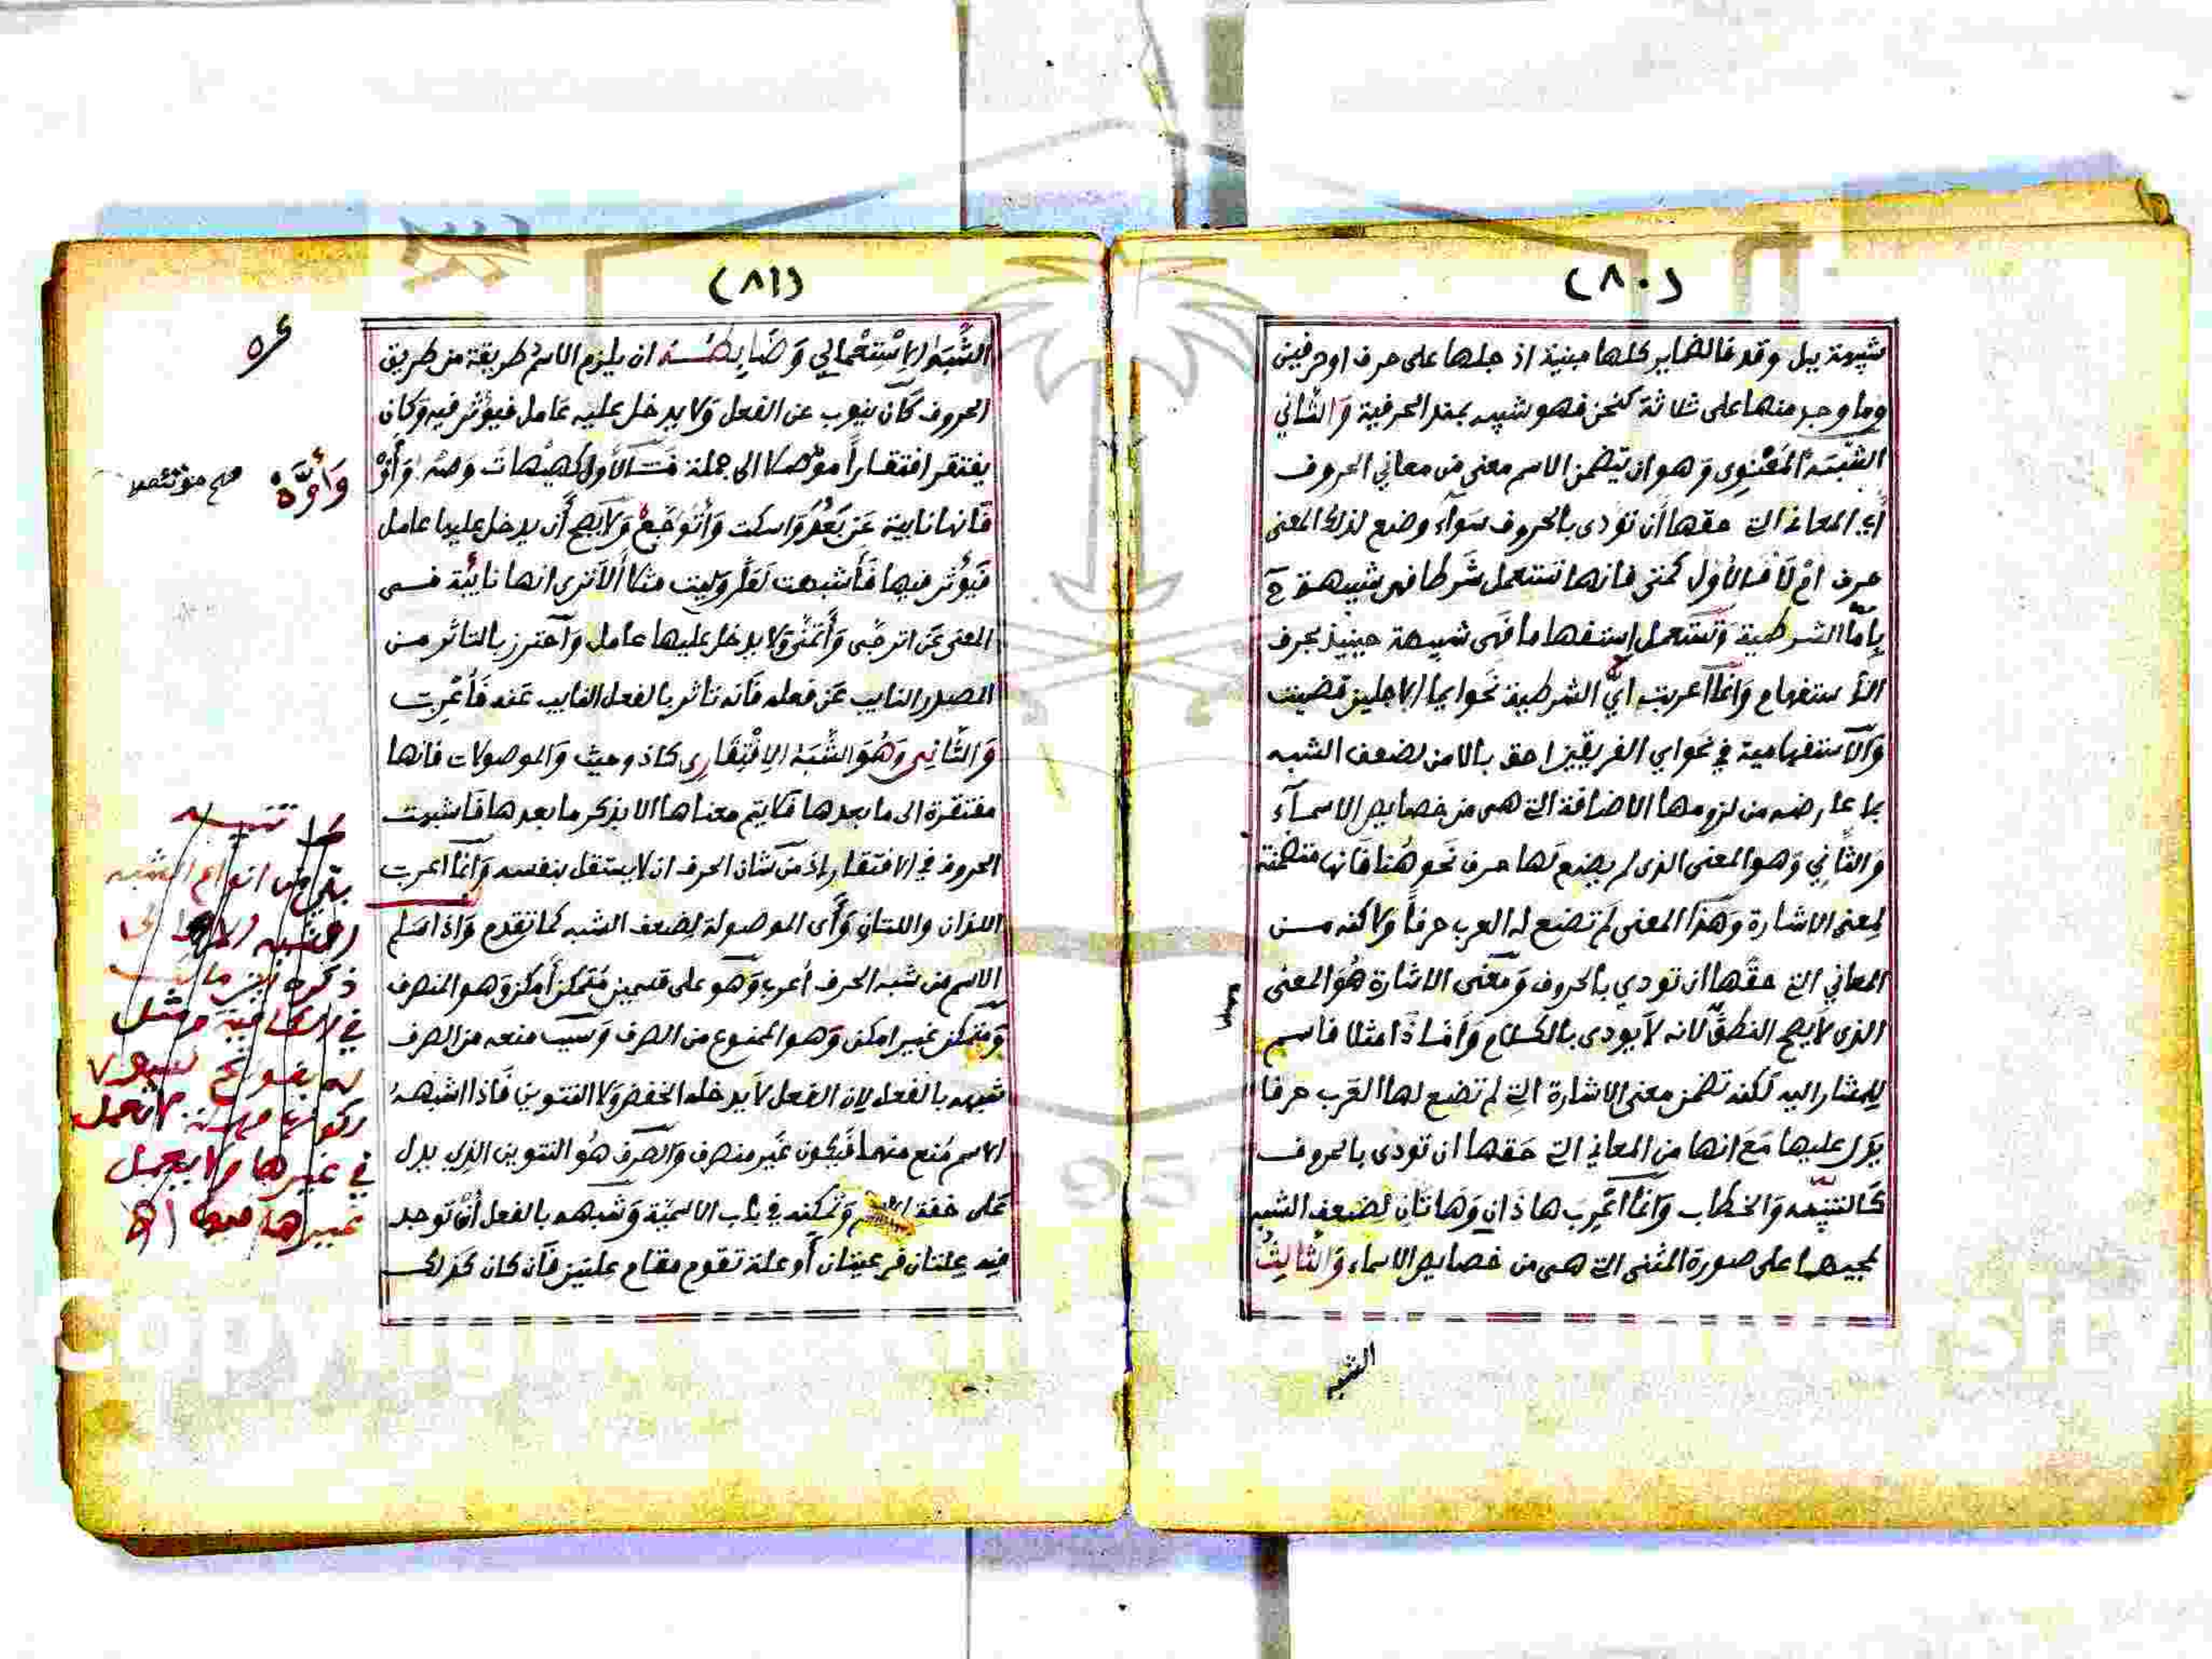 (٨٠)
شبيهة ببل وقد فالضماير كلها مبنية اذ جلها على حرف اوحرفين
وما وجد منها على ثلاثة كنحن فهو شبيه بمنذ الحرفية وَالثَّاني
الشَّبَهُ المَعْنَوِى وَهوان يتضمن الاسم معنى من معاني الحروف
أي المعاني التي حقها أن تؤدى بالحروف سَوآء وضع لذلك المعنى
حرف امْ لَا فَالأَول كمتى فانها تستعمل شَرطا فهى شبيهة ح
بِامّا الشرطية وَتستعمل إستفهاما فَهى شبيهة حينيذ بحرف
الأستفهام وَانماأعربت ايُّ الشرطية نَحو ايما الاجلين قضيت
وَالاستفهامية في نحواي الفريقين احق بالامن لضعف الشبه
بما عارضه من لزومها الاضافة التي هي من خصايص الاسمآء
وَالثَّانِي وَهوالمعنى الذى لم يضع لها حرف نحو هُنا فَانها متضمنة
لمعنى الاشارة وَهَذا المعنى لم تضع له العرب حرفاً وَلاكنه مـن
المعاني التي حقها ان تودي بالحروف وَمَعْنَى الاشارة هُوَالمعنى
الذى لا يصح النطقُ لانه لَايودى بالكلام وَامَّا ذَا مثلا فاسم
للمشار اليه لكنه تضمن معنى الاشارة التي لم تضع لها العَرب حرفا
يَدل عليها مَعَ انها من المعاني التي حَقها ان تؤدى بالحروف
كَالتنبيه وَالخطاب وَانماأعْرِب هاذَانِ وَهَاتَانِ لضعف الشبه
بمجيهما على صورة المثنى التي هى من خصايص الاسماء وَالثَّالِثُ
الشبه
(٨١)
الشَّبَهُ الإسْتِعْمالي وَضَابِطُـهُ ان يلزم الاسم طريقة من طريق
الحروف كَأن ينوب عن الفعل وَلا يدخل عليه عَامل فيؤثر فيه وَكأن
يفتقر افتقـاراً مؤصلا الى جملة فَـالأَول كهيهاتَ وَصَه وَأَوَّه
فَانها نايبة عَن بَعُدَ وَاسكت وَأَتَوَجَّع وَلَايصح أن يدخل عليها عامل
فَيؤثر فيها فَأشبهت لَعَلَّ وَليت مثلا أَلَاترى انها نايبَة فـى
المعنى عَن اترجى وَأَتمنى وَلا يدخل عليها عامل وَآحترز بالتاثر مـن
المصدر النايب عَن فعله فَانه تاثر بالفعل النايب عَنه فَأعْرِبت
وَالثَّانِى وَهُوَالشَّبَهُ الإفْتِقَارِى كاذ وحيث وَالموصولات فانها
مفتقرة الى ما بعدها فَلا يتم معناها الا بذكر ما بعدها فَاشبهت
الحروف في الافتقار إذ من شان الحرف ان لا يستقل بنفسه وَانماأعرب
اللذان واللتان وَأَى الموصولة لِضعف الشبه كما تقدم وَاذا سَلِم
الاسم من شبه الحرف أعرب وَهو على قسمين مُتمكن أَمكن وَهو المنصرف
وَمتمكن غيرامكن وَهو الممنوع من الصرف وَسبب منعه من الصرف
شبهه بالفعل لان الفعل لَايدخله الخفض وَلا التنوين فَاذا اشبهـهُ
الاسم مُنع منهما فَيكون غير منصرف وَالصَّرف هُو التنوين الذي يدل
عَلى خفة الاسم وَتمكنه في باب الاسميّة وَشَبهه بالفعل أن توجد
فيه علتان فرعيتان أَو علة تقوم مقام علتين فَان كان كذلك
وَأَوَّهْ
تنبيـه
بقي من انواع الشبه
ذكره
في
في غيرها ولا يعمل
غيرها فيها اهـ